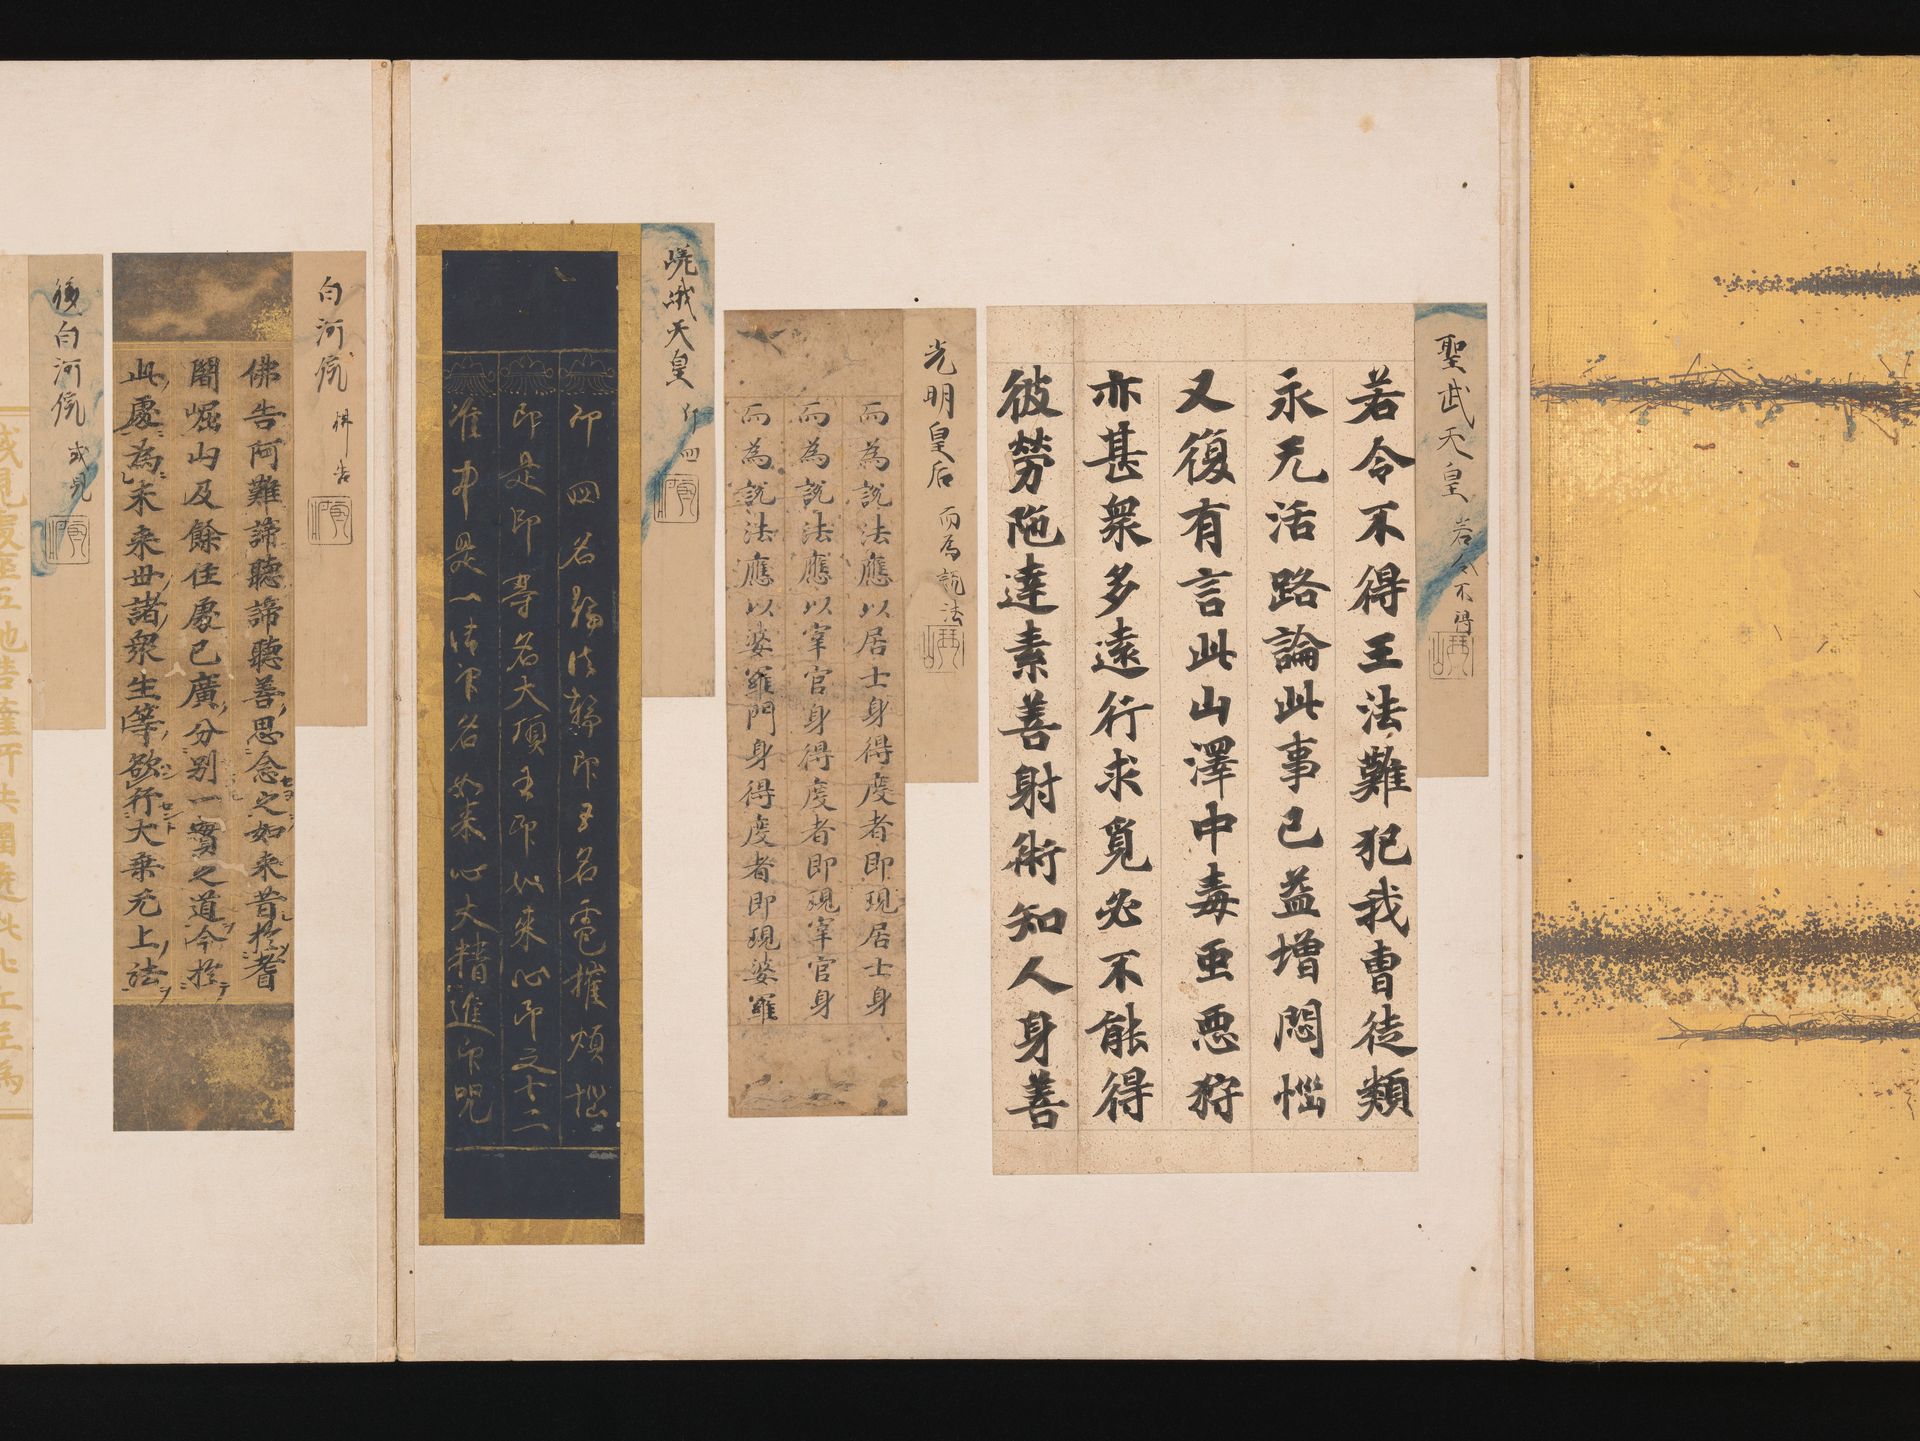 聖武天皇 若令不得
若令不得王法難犯我曹徒類
永无活路論此事已益増悶惱
又復有言此山澤中毒虫悪狩
亦甚衆多遠行求覓必不能得
彼勞陁達素善射術知人身善
光明皇后 而為説法
而為説法應以居士身得度者即現居士身
而為説法應以宰官身得度者即現宰官身
而為説法應以婆羅門身得度者即現婆羅
嵯峨天皇 印四
印四名轉法輪印五名電摧煩惱
印是印等名大頂王印如来心印之十二
准中是一法印名如来心大精進印呪
白河院 佛告
佛告阿難諦聽諦聽善思念之如来昔於耆
闍崛山及餘住處已廣分别一實之道今於
此處為未来丗諸衆生等欲行大乗无上法
後白河院 或見
或見處座五地菩薩所共